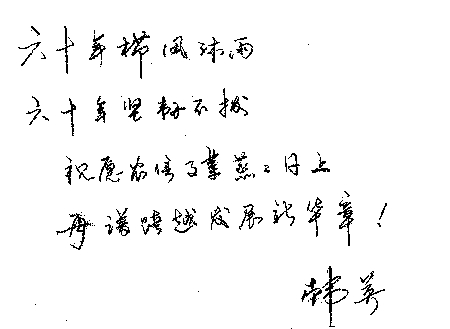 六十年栉风沐雨
六十年坚韧不拔
祝愿农信事业蒸蒸日上
再谱跨越发展新华章！
韩英